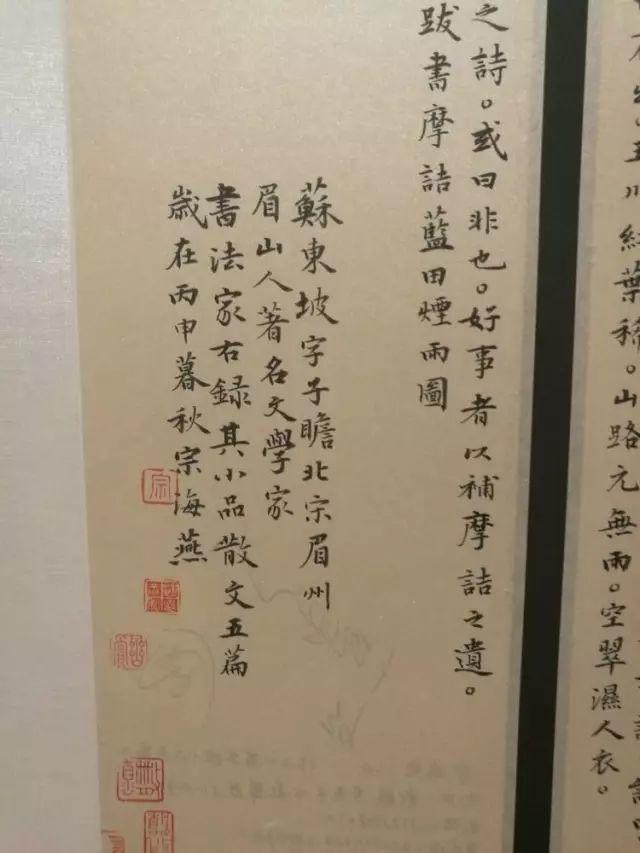 石出。玉川紅葉稀。山路元無雨。空翠濕人衣。
之詩。或曰非也。好事者以補摩詰之遺。
跋書摩詰藍田煙雨圖
蘇東坡字子瞻北宋眉州
眉山人著名文學家
書法家右録其小品散文五篇
歲在丙申暮秋宗海燕
宗